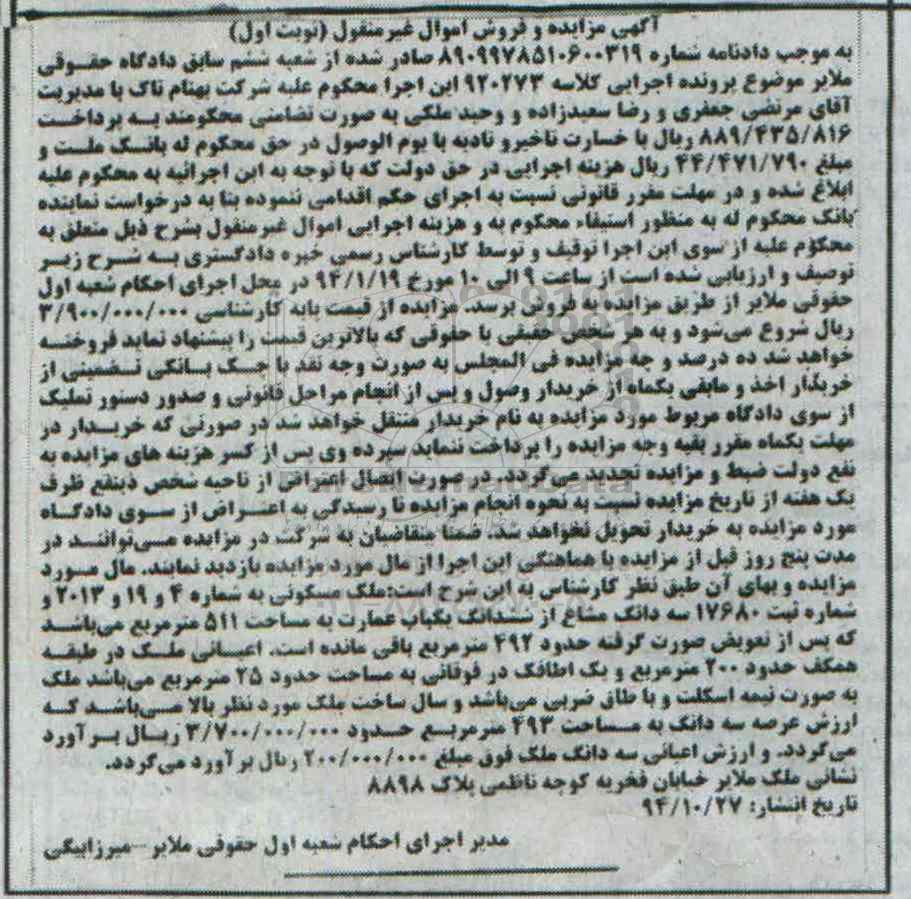 آگهی مزایده و فروش اموال غیرمنقول (نوبت اول)
به موجب دادنامه شماره ۸۹۰۹۹۷۸۵۱۰۶۰۰۳۱۹ صادر شده از شعبه ششم سابق دادگاه حقوقی
ملایر موضوع پرونده اجرایی کلاسه ۹۲۰۲۷۳ این اجرا محکوم علیه شرکت بهنام تاک با مدیریت
آقای مرتضی جعفری و رضا سعیدزاده و وحید ملکی به صورت تضامنی محکومند به پرداخت
۸۸۹/۴۳۵/۸۱۶ ریال با خسارت تاخیر و تادیه با یوم الوصول در حق محکوم له بانک ملت و
مبلغ ۴۴/۴۷۱/۷۹۰ ریال هزینه اجرایی در حق دولت که با توجه به این اجرائیه به محکوم علیه
ابلاغ شده و در مهلت مقرر قانونی نسبت به اجرای حکم اقدامی ننموده بنا به درخواست نماینده
بانک محکوم له به منظور استیفاء محکوم به و هزینه اجرایی اموال غیرمنقول بشرح ذیل متعلق به
محکوم علیه از سوی این اجرا توقیف و توسط کارشناس رسمی خبره دادگستری به شرح زیر
توصیف و ارزیابی شده است از ساعت ۹ الی ۱۰ مورخ ۹۴/۱/۱۹ در محل اجرای احکام شعبه اول
حقوقی ملایر از طریق مزایده به فروش برسد. مزایده از قیمت پایه کارشناسی ۳/۹۰۰/۰۰۰/۰۰۰
ریال شروع می‌شود و به هر شخص حقیقی یا حقوقی که بالاترین قیمت را پیشنهاد نماید فروخته
خواهد شد ده درصد و جه مزایده فی المجلس به صورت وجه نقد یا چک بانکی تضمینی از
خریدار اخذ و مابقی یکماه از خریدار وصول و پس از انجام مراحل قانونی و صدور دستور تملیک
از سوی دادگاه مربوط مورد مزایده به نام خریدار منتقل خواهد شد در صورتی که خریدار در
مهلت یکماه مقرر بقیه وجه مزایده را پرداخت ننماید سپرده وی پس از کسر هزینه های مزایده به
نفع دولت ضبط و مزایده تجدید می گردد. در صورت اتصال اعتراض از ناحیه شخص ذینفع ظرف
یک هفته از تاریخ مزایده نسبت به نحوه انجام مزایده تا رسیدگی به اعتراض از سوی دادگاه
مورد مزایده به خریدار تحویل نخواهد شد. ضمنا متقاضیان به شرکت در مزایده می‌توانند در
مدت پنج روز قبل از مزایده با هماهنگی این اجرا از مال مورد مزایده بازدید نمایند. مال مورد
مزایده و بهای آن طبق نظر کارشناس به این شرح است:ملک مسکونی به شماره ۴ و ۱۹ و ۲۰۱۳ و
شماره ثبت ۱۷۶۸۰ سه دانگ مشاع از ششدانگ یکباب عمارت به مساحت ۵۱۱ مترمربع می‌باشد
که پس از تعویض صورت گرفته حدود ۴۹۲ مترمربع باقی مانده است. اعیانی ملک در طبقه
همکف حدود ۲۰۰ مترمربع و یک اطاقک در فوقانی به مساحت حدود ۲۵ مترمربع می‌باشد ملک
به صورت نیمه اسکلت و با طاق ضربی می‌باشد و سال ساخت ملک مورد نظر بالا می‌باشد که
ارزش عرصه سه دانگ به مساحت ۴۹۳ مترمربع حدود ۳/۷۰۰/۰۰۰/۰۰۰ ریال برآورد
می گردد. و ارزش اعیانی سه دانگ ملک فوق مبلغ ۲۰۰/۰۰۰/۰۰۰ ریال برآورد می گردد.
نشانی ملک ملایر خیابان فخریه کوچه ناظمی پلاک ۸۸۹۸
تاریخ انتشار: ۹۴/۱۰/۲۷
مدیر اجرای احکام شعبه اول حقوقی ملایر-میرزابیگی